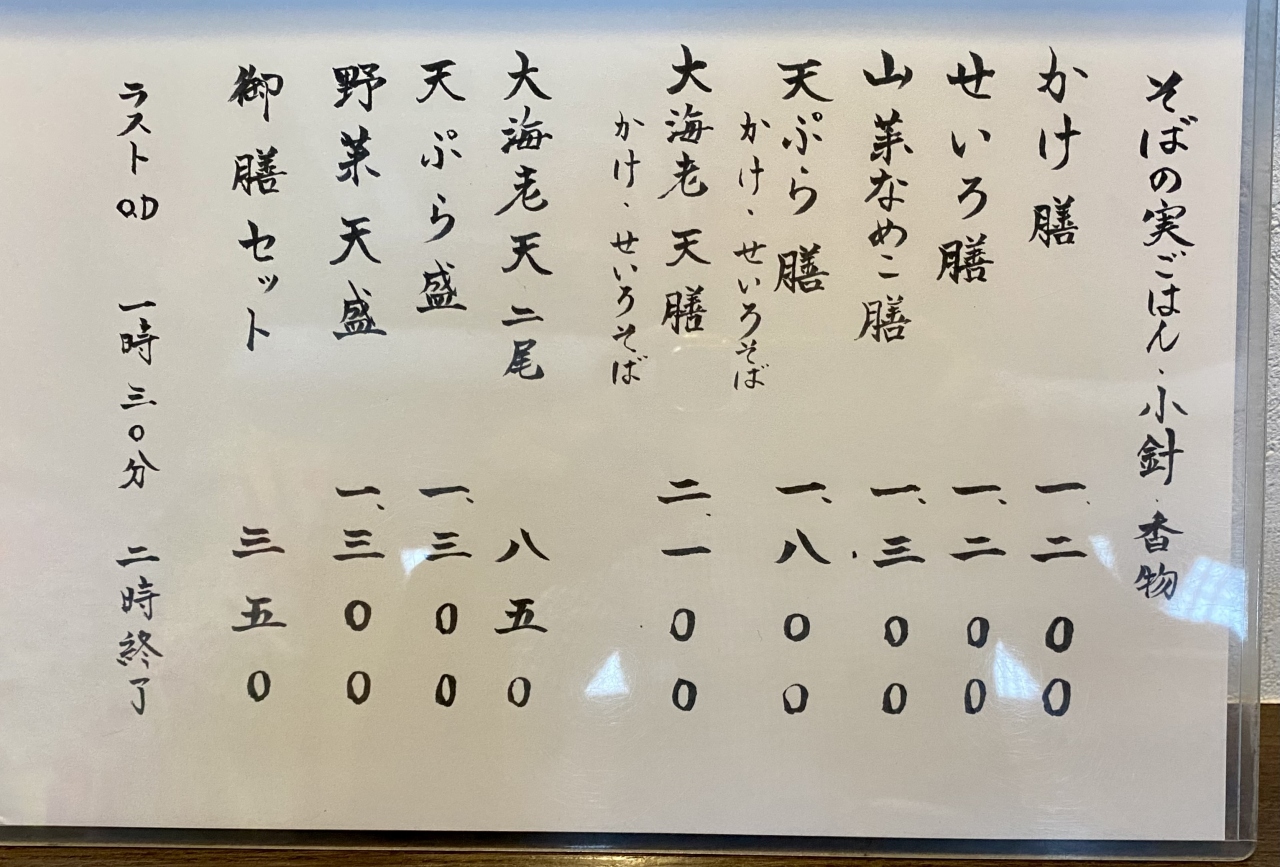 そばの実ごはん、小針、香物
かけ膳 一、二00
せいろ膳 一、二00
山菜なめこ膳 一、三00
天ぷら膳 一、八00
かけ、せいろそば
大海老天膳 二、一00
かけ、せいろそば
大海老天二尾 八五0
天ぷら盛 一、三00
野菜天盛 一、三00
御膳セット 三五0
ラストO.D 一時三0分 二時終了